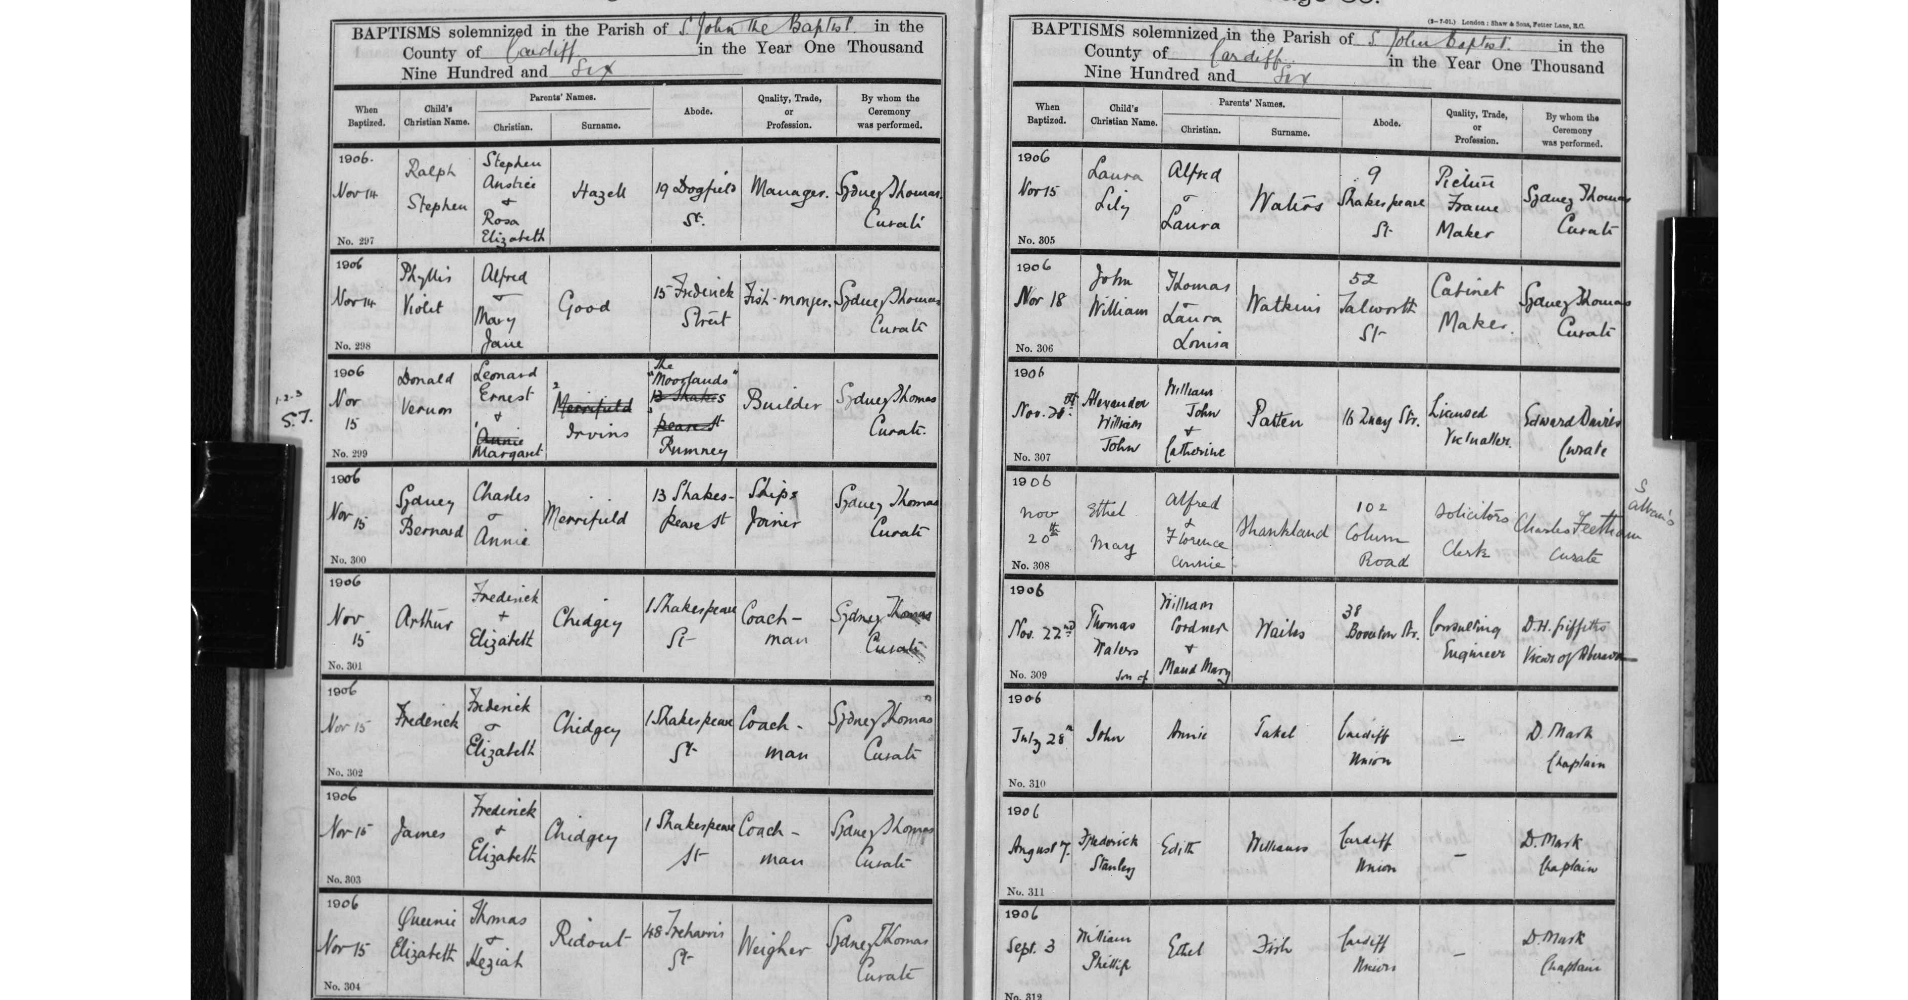 BAPTISMS solemnized in the Parish of S. John the Baptist in the
County of Cardiff in the Year One Thousand
Nine Hundred and Six
When Baptized. Child's Christian Name. Parents' Names. Christian. Surname. Abode. Quality, Trade, or Profession. By whom the Ceremony was performed.
1906. Nov 14 No. 297 Ralph Stephen Stephen Anstice + Rosa Elizabeth Hazell 19 Dogfield St. Manager. Sydney Thomas Curate
1906 Nov 14 No. 298 Phyllis Violet Alfred + Mary Jane Good 15 Frederick Street Fish-monger. Sydney Thomas Curate
1.2.3
S.T.
1906 Nov 15 No. 299 Donald Vernon Leonard Ernest + Annie Margaret Merrifield Irvins The "Moorlands" 13 Shakespeare St Rumney Builder Sydney Thomas Curate
1906 Nov 15 No. 300 Sydney Bernard Charles + Annie Merrifield 13 Shakes-peare St Ships Joiner Sydney Thomas Curate
1906 Nov 15 No. 301 Arthur Frederick + Elizabeth Chidgey 1 Shakespeare St Coach-man Sydney Thomas Curate
1906 Nov 15 No. 302 Frederick Frederick + Elizabeth Chidgey 1 Shakespeare St Coach-man Sydney Thomas Curate
1906 Nov 15 No. 303 James Frederick + Elizabeth Chidgey 1 Shakespeare St Coach-man Sydney Thomas Curate
1906 Nov 15 No. 304 Queenie Elizabeth Thomas + Keziah Ridout 48 Treharris St Weigher Sydney Thomas Curate
(3-7-01.) London: Shaw & Sons, Fetter Lane, E.C.
BAPTISMS solemnized in the Parish of S. John Baptist. in the
County of Cardiff in the Year One Thousand
Nine Hundred and Six
When Baptized. Child's Christian Name. Parents' Names. Christian. Surname. Abode. Quality, Trade, or Profession. By whom the Ceremony was performed.
1906 Nov 15 No. 305 Laura Lily Alfred + Laura Waters 9 Shakespeare St Picture Frame Maker Sydney Thomas Curate
1906 Nov 18 No. 306 John William Thomas + Laura Louisa Watkins 52 Talworth St Cabinet Maker. Sydney Thomas Curate
1906 Nov. 20th No. 307 Alexander William John William John + Catherine Patten 16 Quay Str. Licensed Victualler. Edward Davies Curate
1906 Nov 20th No. 308 Ethel May Alfred + Florence Annie Shankland 102 Colum Road Solicitors Clerk Charles Feetham Curate
S Alban's
1906 Nov. 22nd No. 309 Thomas Waters son of William Cordner + Maud Mary Waites 38 Str. Consulting Engineer D.H. Griffiths Vicar of Aberavon
1906 July 28th No. 310 John Annie Takel Cardiff Union — D. Mark Chaplain
1906 August 7. No. 311 Frederick Stanley Edith Williams Cardiff Union — D. Mark Chaplain
1906 Sept. 3 No. 312 William Phillip Ethel Fish Cardiff Union — D. Mark Chaplain